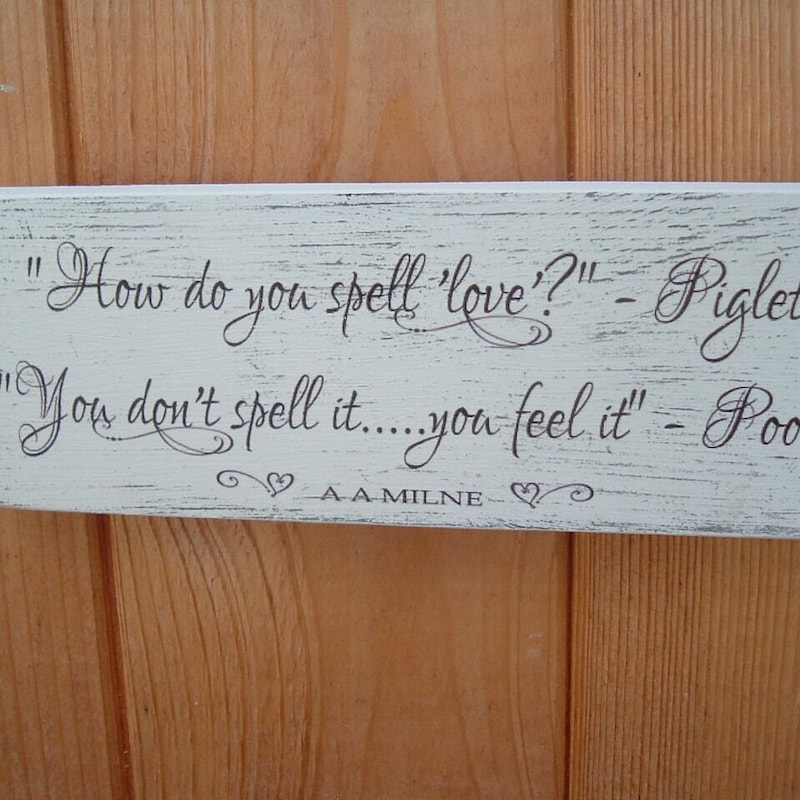 "How do you spell 'love'?" - Piglet
"You don't spell it.....you feel it" - Poo
A A MILNE